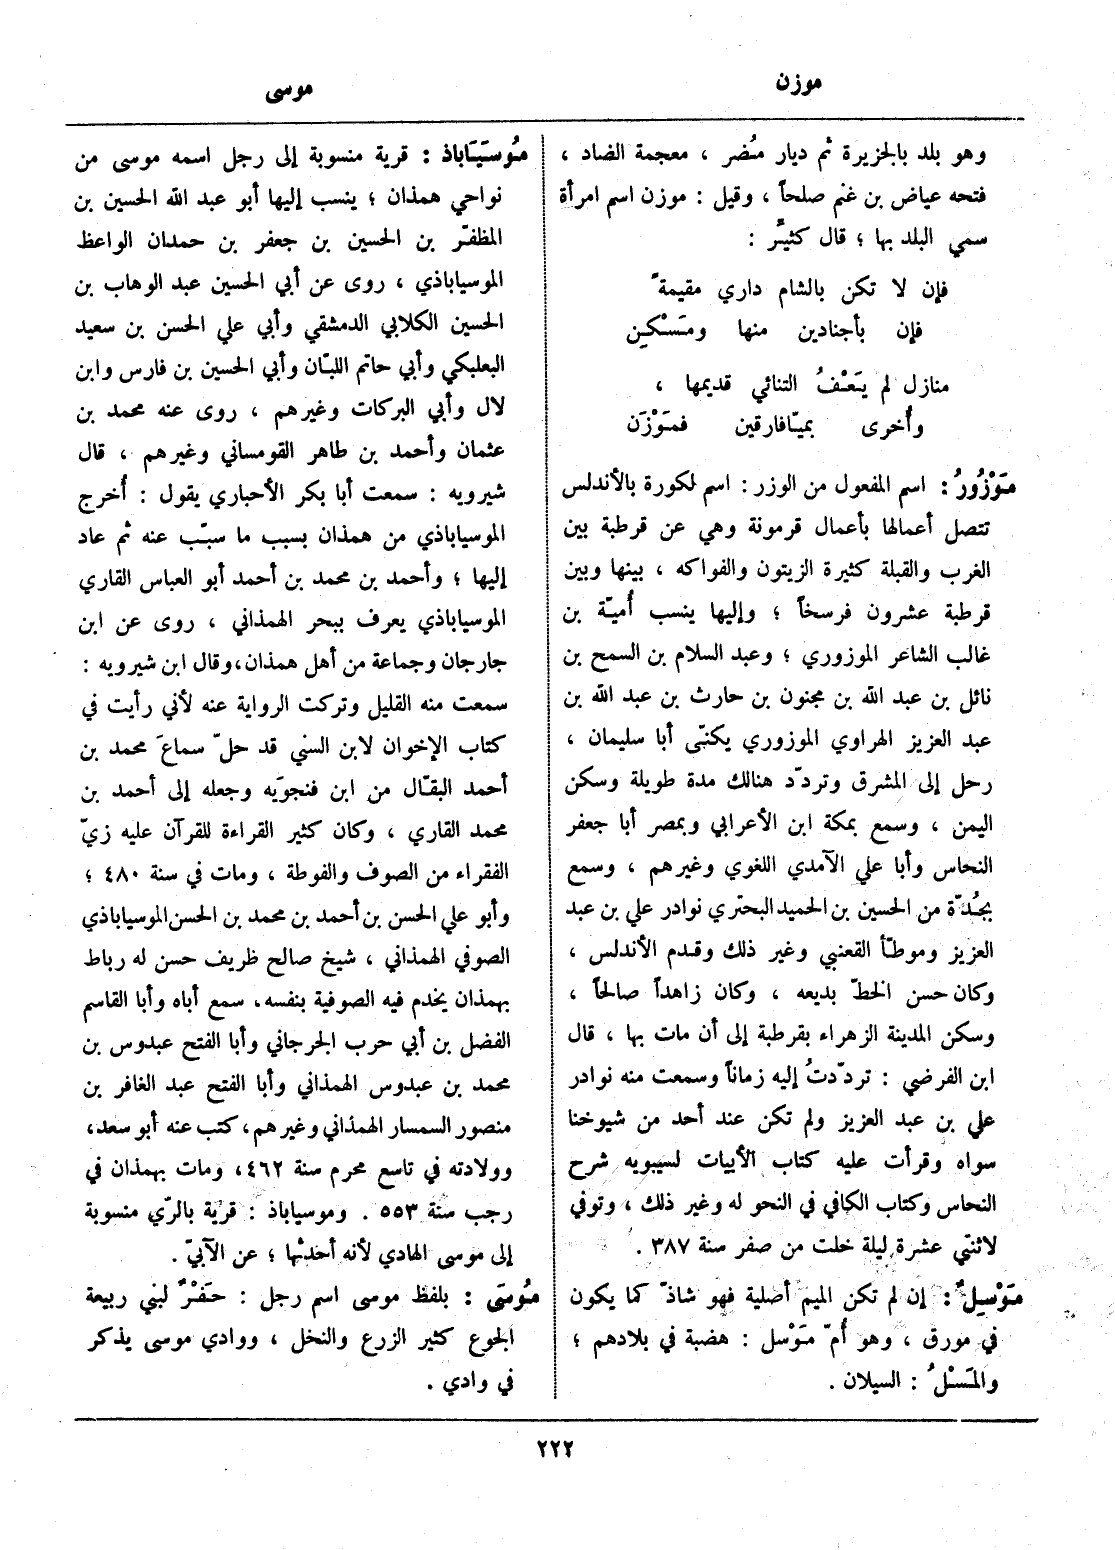 موزن
موسى
وهو بلد بالجزيرة ثم ديار مُضر ، معجمة الضاد ،
فتحه عياض بن غنم صلحاً ، وقيل : موزن اسم امرأة
سمي البلد بها ؛ قال كثيّر :
فإن لا تكن بالشام داري مقيمةً
فإن بأجنادين منها ومَسْكِن
منازل لم يَعْفُ التنائي قديمها ،
وأُخرى بميّافارقين فمَوْزَن
مَوْزُورُ : اسم المفعول من الوزر : اسم لكورة بالأندلس
تتصل أعمالها بأعمال قرمونة وهي عن قرطبة بين
الغرب والقبلة كثيرة الزيتون والفواكه ، بينها وبين
قرطبة عشرون فرسخاً ؛ وإليها ينسب أُميّة بن
غالب الشاعر الموزوري ؛ وعبد السلام بن السمح بن
نائل بن عبد الله بن مجنون بن حارث بن عبد الله بن
عبد العزيز الهراوي الموزوري يكنّى أبا سليمان ،
رحل إلى المشرق وتردّد هنالك مدة طويلة وسكن
اليمن ، وسمع بمكة ابن الأعرابي وبمصر أبا جعفر
النحاس وأبا علي الآمدي اللغوي وغيرهم ، وسمع
بجُدّة من الحسين بن الحميد البحتري نوادر علي بن عبد
العزيز وموطّأ القعنبي وغير ذلك وقدم الأندلس ،
وكان حسن الخطّ بديعه ، وكان زاهداً صالحاً ،
وسكن المدينة الزهراء بقرطبة إلى أن مات بها ، قال
ابن الفرضي : تردّدتُ إليه زماناً وسمعت منه نوادر
علي بن عبد العزيز ولم تكن عند أحد من شيوخنا
سواه وقرأت عليه كتاب الأبيات لسيبويه شرح
النحاس وكتاب الكافي في النحو له وغير ذلك ، وتوفي
لاثنتي عشرة ليلة خلت من صفر سنة ٣٨٧ .
مَوْسِلٌ : إن لم تكن الميم أصلية فهو شاذّ كما يكون
في مورق ، وهو أُمّ مَوْسل : هضبة في بلادهم ؛
والمَسْلُ : السيلان .
مُوسَيَاباذ : قرية منسوبة إلى رجل اسمه موسى من
نواحي همذان ؛ ينسب إليها أبو عبد الله الحسين بن
المظفّر بن الحسين بن جعفر بن حمدان الواعظ
الموسياباذي ، روى عن أبي الحسين عبد الوهاب بن
الحسين الكلابي الدمشقي وأبي علي الحسن بن سعيد
البعلبكي وأبي حاتم اللبّان وأبي الحسين بن فارس وابن
لال وأبي البركات وغيرهم ، روى عنه محمد بن
عثمان وأحمد بن طاهر القومساني وغيرهم ، قال
شيرويه : سمعت أبا بكر الأحباري يقول : أُخرج
الموسياباذي من همذان بسبب ما سبّب عنه ثم عاد
إليها ؛ وأحمد بن محمد بن أحمد أبو العباس القاري
الموسياباذي يعرف ببحر الهمذاني ، روى عن ابن
جارجان وجماعة من أهل همذان، وقال ابن شيرويه :
سمعت منه القليل وتركت الرواية عنه لأني رأيت في
كتاب الإخوان لابن السني قد حلّ سماعَ محمد بن
أحمد البقّال من ابن فنجويَه وجعله إلى أحمد بن
محمد القاري ، وكان كثير القراءة للقرآن عليه زيّ
الفقراء من الصوف والفوطة ، ومات في سنة ٤٨٠ ؛
وأبو علي الحسن بن أحمد بن محمد بن الحسن الموسياباذي
الصوفي الهمذاني ، شيخ صالح ظريف حسن له رباط
بهمذان يخدم فيه الصوفية بنفسه، سمع أباه وأبا القاسم
الفضل بن أبي حرب الجرجاني وأبا الفتح عبدوس بن
محمد بن عبدوس الهمذاني وأبا الفتح عبد الغافر بن
منصور السمسار الهمذاني وغيرهم، كتب عنه أبو سعد،
وولادته في تاسع محرم سنة ٤٦٢، ومات بهمذان في
رجب سنة ٥٥٣ . وموسياباذ : قرية بالرّي منسوبة
إلى موسى الهادي لأنه أحدثها ؛ عن الآبيّ .
مُوسَى : بلفظ موسى اسم رجل : حَفْرٌ لبني ربيعة
الجوع كثير الزرع والنخل ، ووادي موسى يذكر
في وادي .
٢٢٢